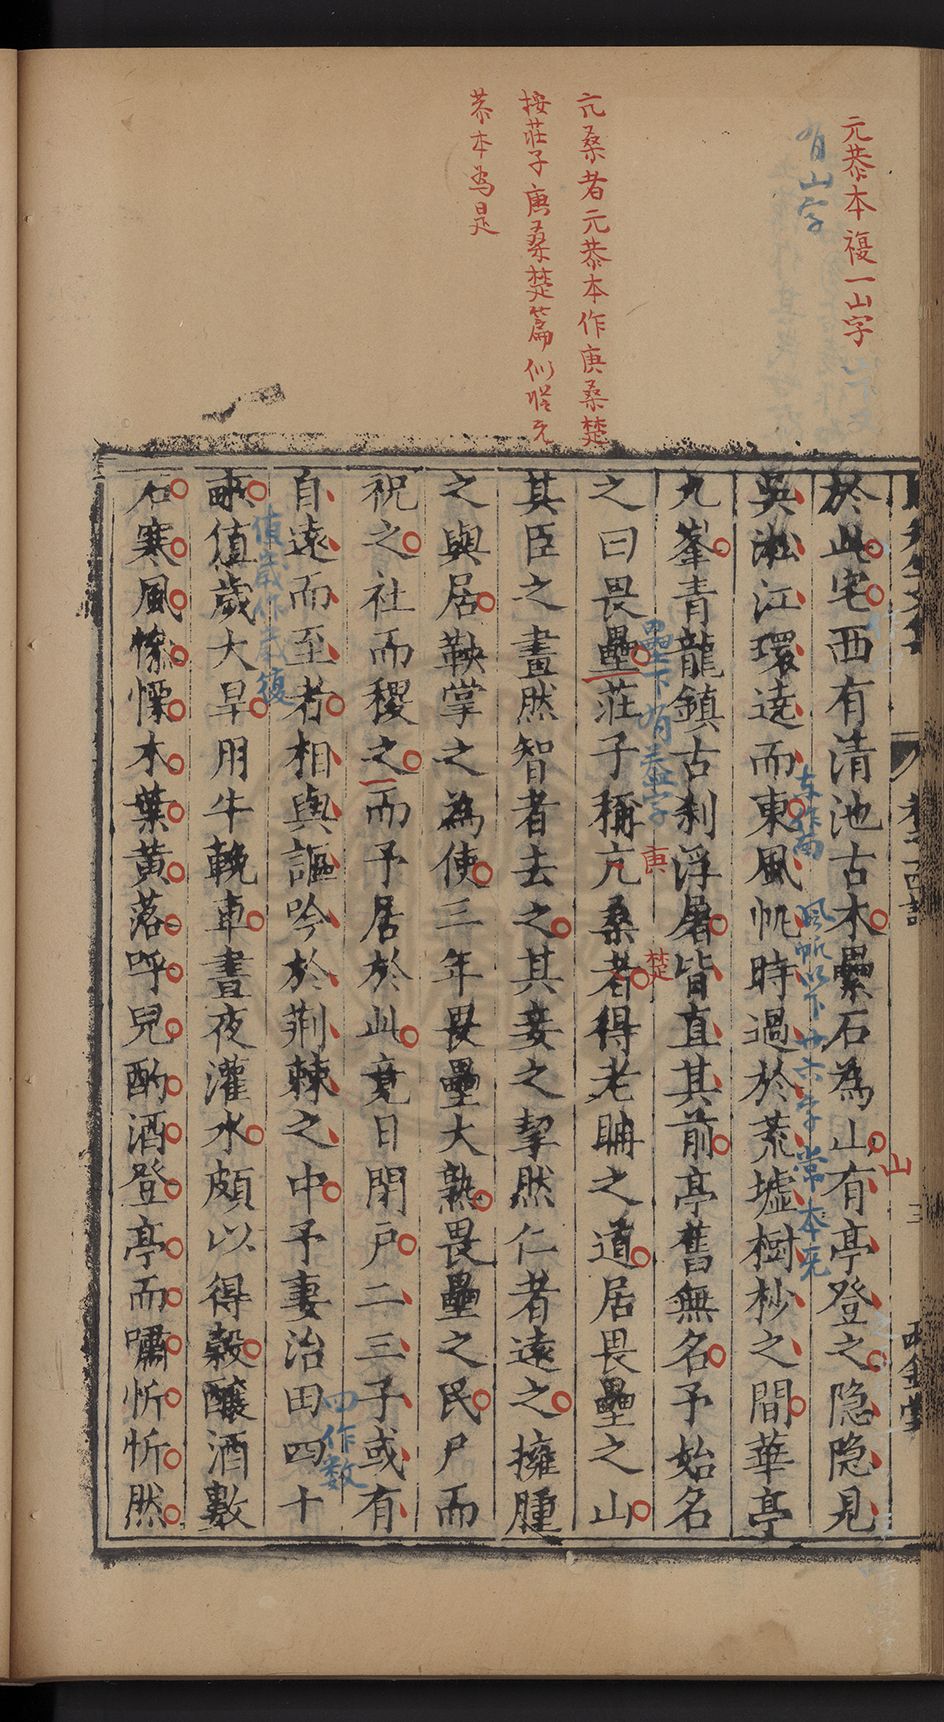 元恭本複一山字
有山字
亢桑者元恭本作庚桑楚
按莊子庚桑楚篇似從元
恭本為是
於此宅西有清池古木壘石為山有亭登之隐隐見
吳淞江環遶而東風帆時過於荒墟樹杪之間華亭
九峯青龍鎮古刹浮屠皆直其前亭舊無名予始名
之曰畏壘莊子稱亢桑者得老聃之道居畏壘之山
其臣之畫然智者去之其妾之挈然仁者遠之擁腫
之與居鞅掌之為使三年畏壘大熟畏壘之民尸而
祝之社而稷之而予居於此竟日閉戶二三子或有
自遠而至者相與謳吟於荊棘之中予妻治田四十
畝值歲大旱用牛輓車晝夜灌水頗以得穀釀酒數
石寒風慘慄木葉黃落呼兒酌酒登亭而嘯忻忻然
山
东作南
風帆以下廿六字常本无
壘下有亭字
庚
楚
四作数
值歲作歲復
三